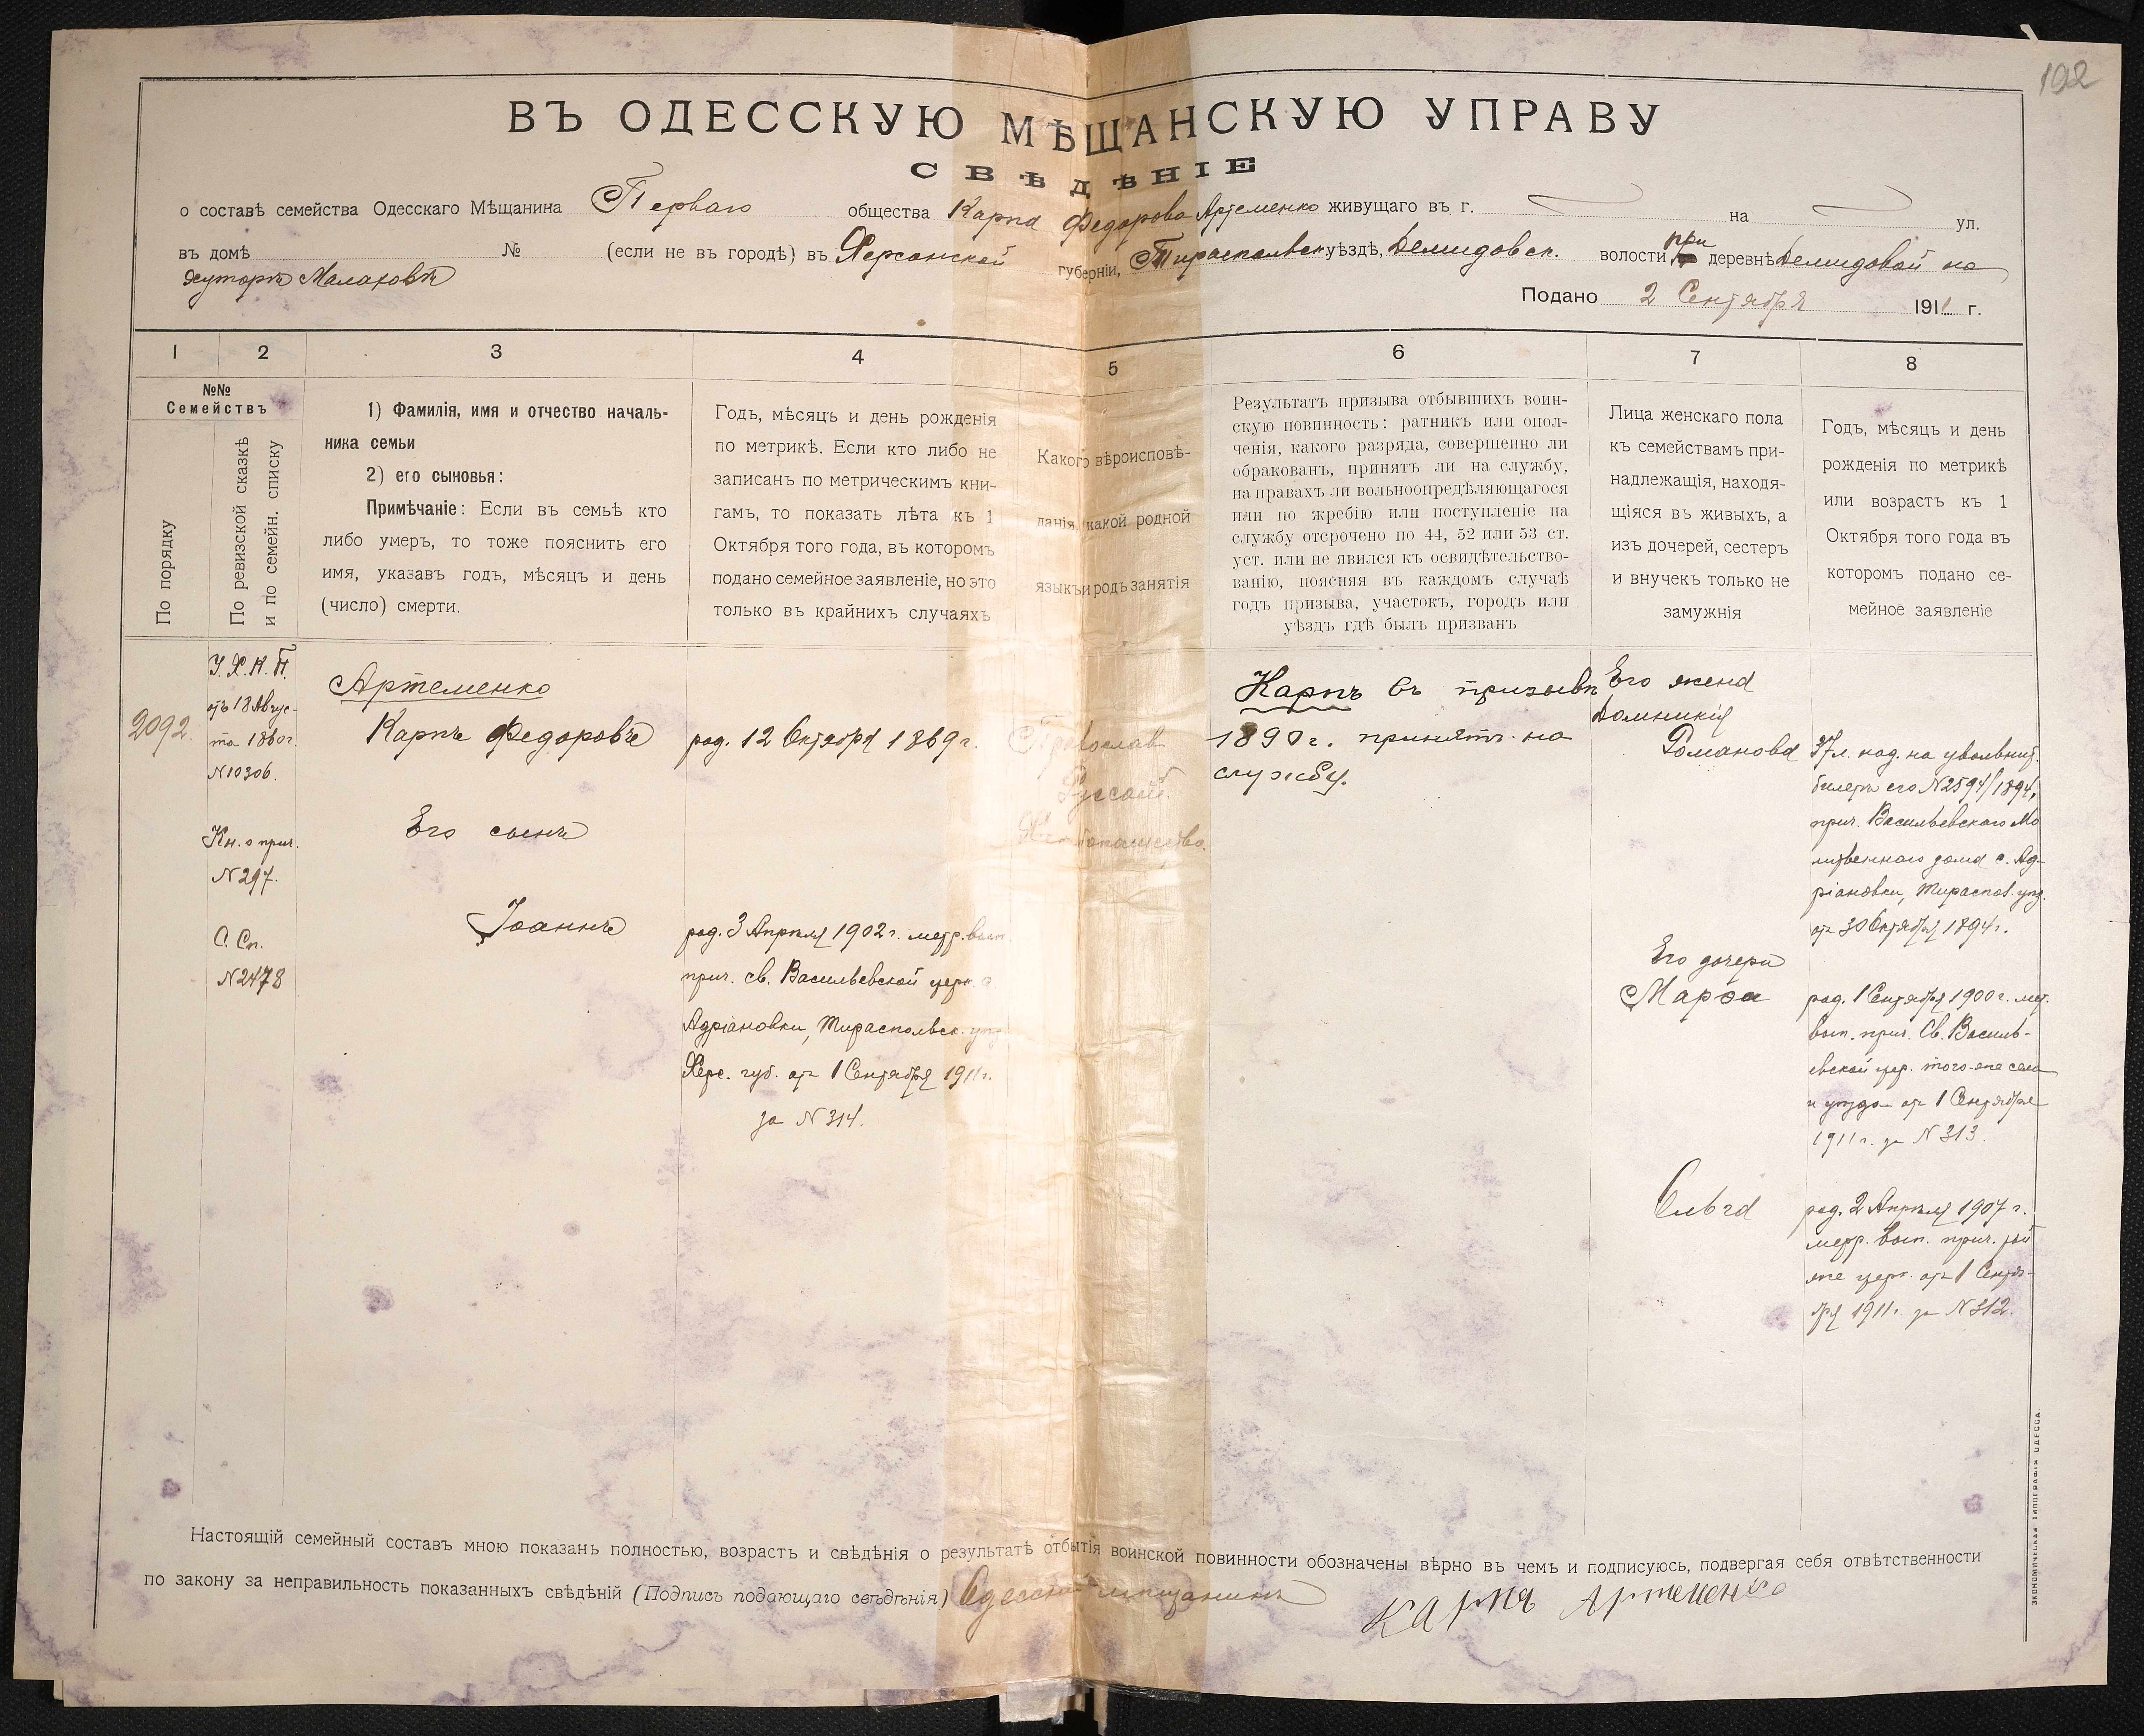 192
ВЪ ОДЕССКУЮ МѢЩАНСКУЮ УПРАВУ
СВѢДѢНІЕ
о составѣ семейства Одесскаго Мѣщанина Перваго общества Карпа Федорова Артеменко живущаго въ г. на ул.
въ домѣ № (если не въ городѣ) въ Херсонской губерніи, Тираспольск. уѣздѣ, Демидовск. волости при деревнѣ Демидовой на
хуторѣ Малаховѣ
Подано 2 Сентября 1911 г.
1 2 3 4 5 6 7 8
№№
Семействъ
По порядку
По ревизской сказкѣ
и по семейн. списку
1) Фамилія, имя и отчество началь-
ника семьи
2) его сыновья:
Примѣчаніе: Если въ семьѣ кто
либо умеръ, то тоже пояснить его
имя, указавъ годъ, мѣсяцъ и день
(число) смерти.
Годъ, мѣсяцъ и день рожденія
по метрикѣ. Если кто либо не
записанъ по метрическимъ кни-
гамъ, то показать лѣта къ 1
Октября того года, въ которомъ
подано семейное заявленіе, но это
только въ крайнихъ случаяхъ
Какого вѣроисповѣ-
данія, какой родной
языкъ и родъ занятія
Результатъ призыва отбывшихъ воин-
скую повинность: ратникъ или опол-
ченія, какого разряда, совершенно ли
обракованъ, принятъ ли на службу,
на правахъ ли вольноопредѣляющагося
или по жребію или поступленіе на
службу отсрочено по 44, 52 или 53 ст.
уст. или не явился къ освидѣтельство-
ванію, поясняя въ каждомъ случаѣ
годъ призыва, участокъ, городъ или
уѣздъ гдѣ былъ призванъ
Лица женскаго пола
къ семействамъ при-
надлежащія, находя-
щіяся въ живыхъ, а
изъ дочерей, сестеръ
и внучекъ только не
замужнія
Годъ, мѣсяцъ и день
рожденія по метрикѣ
или возрастъ къ 1
Октября того года въ
которомъ подано се-
мейное заявленіе
2092.
У. Х. К. П.
отъ 18 Авгус-
та 1860 г.
№ 10306.
Кн. о прич.
№ 297.
С. Сп.
№ 2478
Артеменко
Карпъ Федоровъ
Его сынъ
Іоаннъ
род. 12 Октября 1869 г.
род. 3 Апрѣля 1902 г. метр. вып.
прич. св. Васильевской церк. с.
Адріановки, Тираспольск. уѣзд.
Херс. губ. отъ 1 Сентября 1911 г.
за № 314.
Православ.
Русскій.
Хлѣбопашество.
Карпъ въ призывѣ
1890 г. принятъ на
службу.
Его жена
Домникія
Романова
Его дочери
Марфа
Ольга
37 л. пок. на увольнит.
билетѣ его № 2594/1894,
прич. Васильевскаго Мо
литвеннаго дома с. Ад-
ріановки, Тираспол. уѣзд.
отъ 30 Октября 1894 г.
род. 1 Сентября 1900 г. мет.
вып. прич. Св. Василь-
евской цер. того-же села
и уѣзда отъ 1 Сентября
1911 г. за № 313.
род. 2 Апрѣля 1907 г.
метр. вып. прич. той
же церк. отъ 1 Сентя-
бря 1911 г. за № 312.
Настоящій семейный составъ мною показанъ полностью, возрастъ и свѣдѣнія о результатѣ отбытія воинской повинности обозначены вѣрно въ чемъ и подписуюсь, подвергая себя отвѣтственности
по закону за неправильность показанныхъ свѣдѣній (Подпись подающаго свѣдѣнія) Одесскій мѣщанинъ
Карпъ Артеменко
ЭКОНОМИЧЕСКАЯ ТИПОГРАФІЯ ОДЕССА